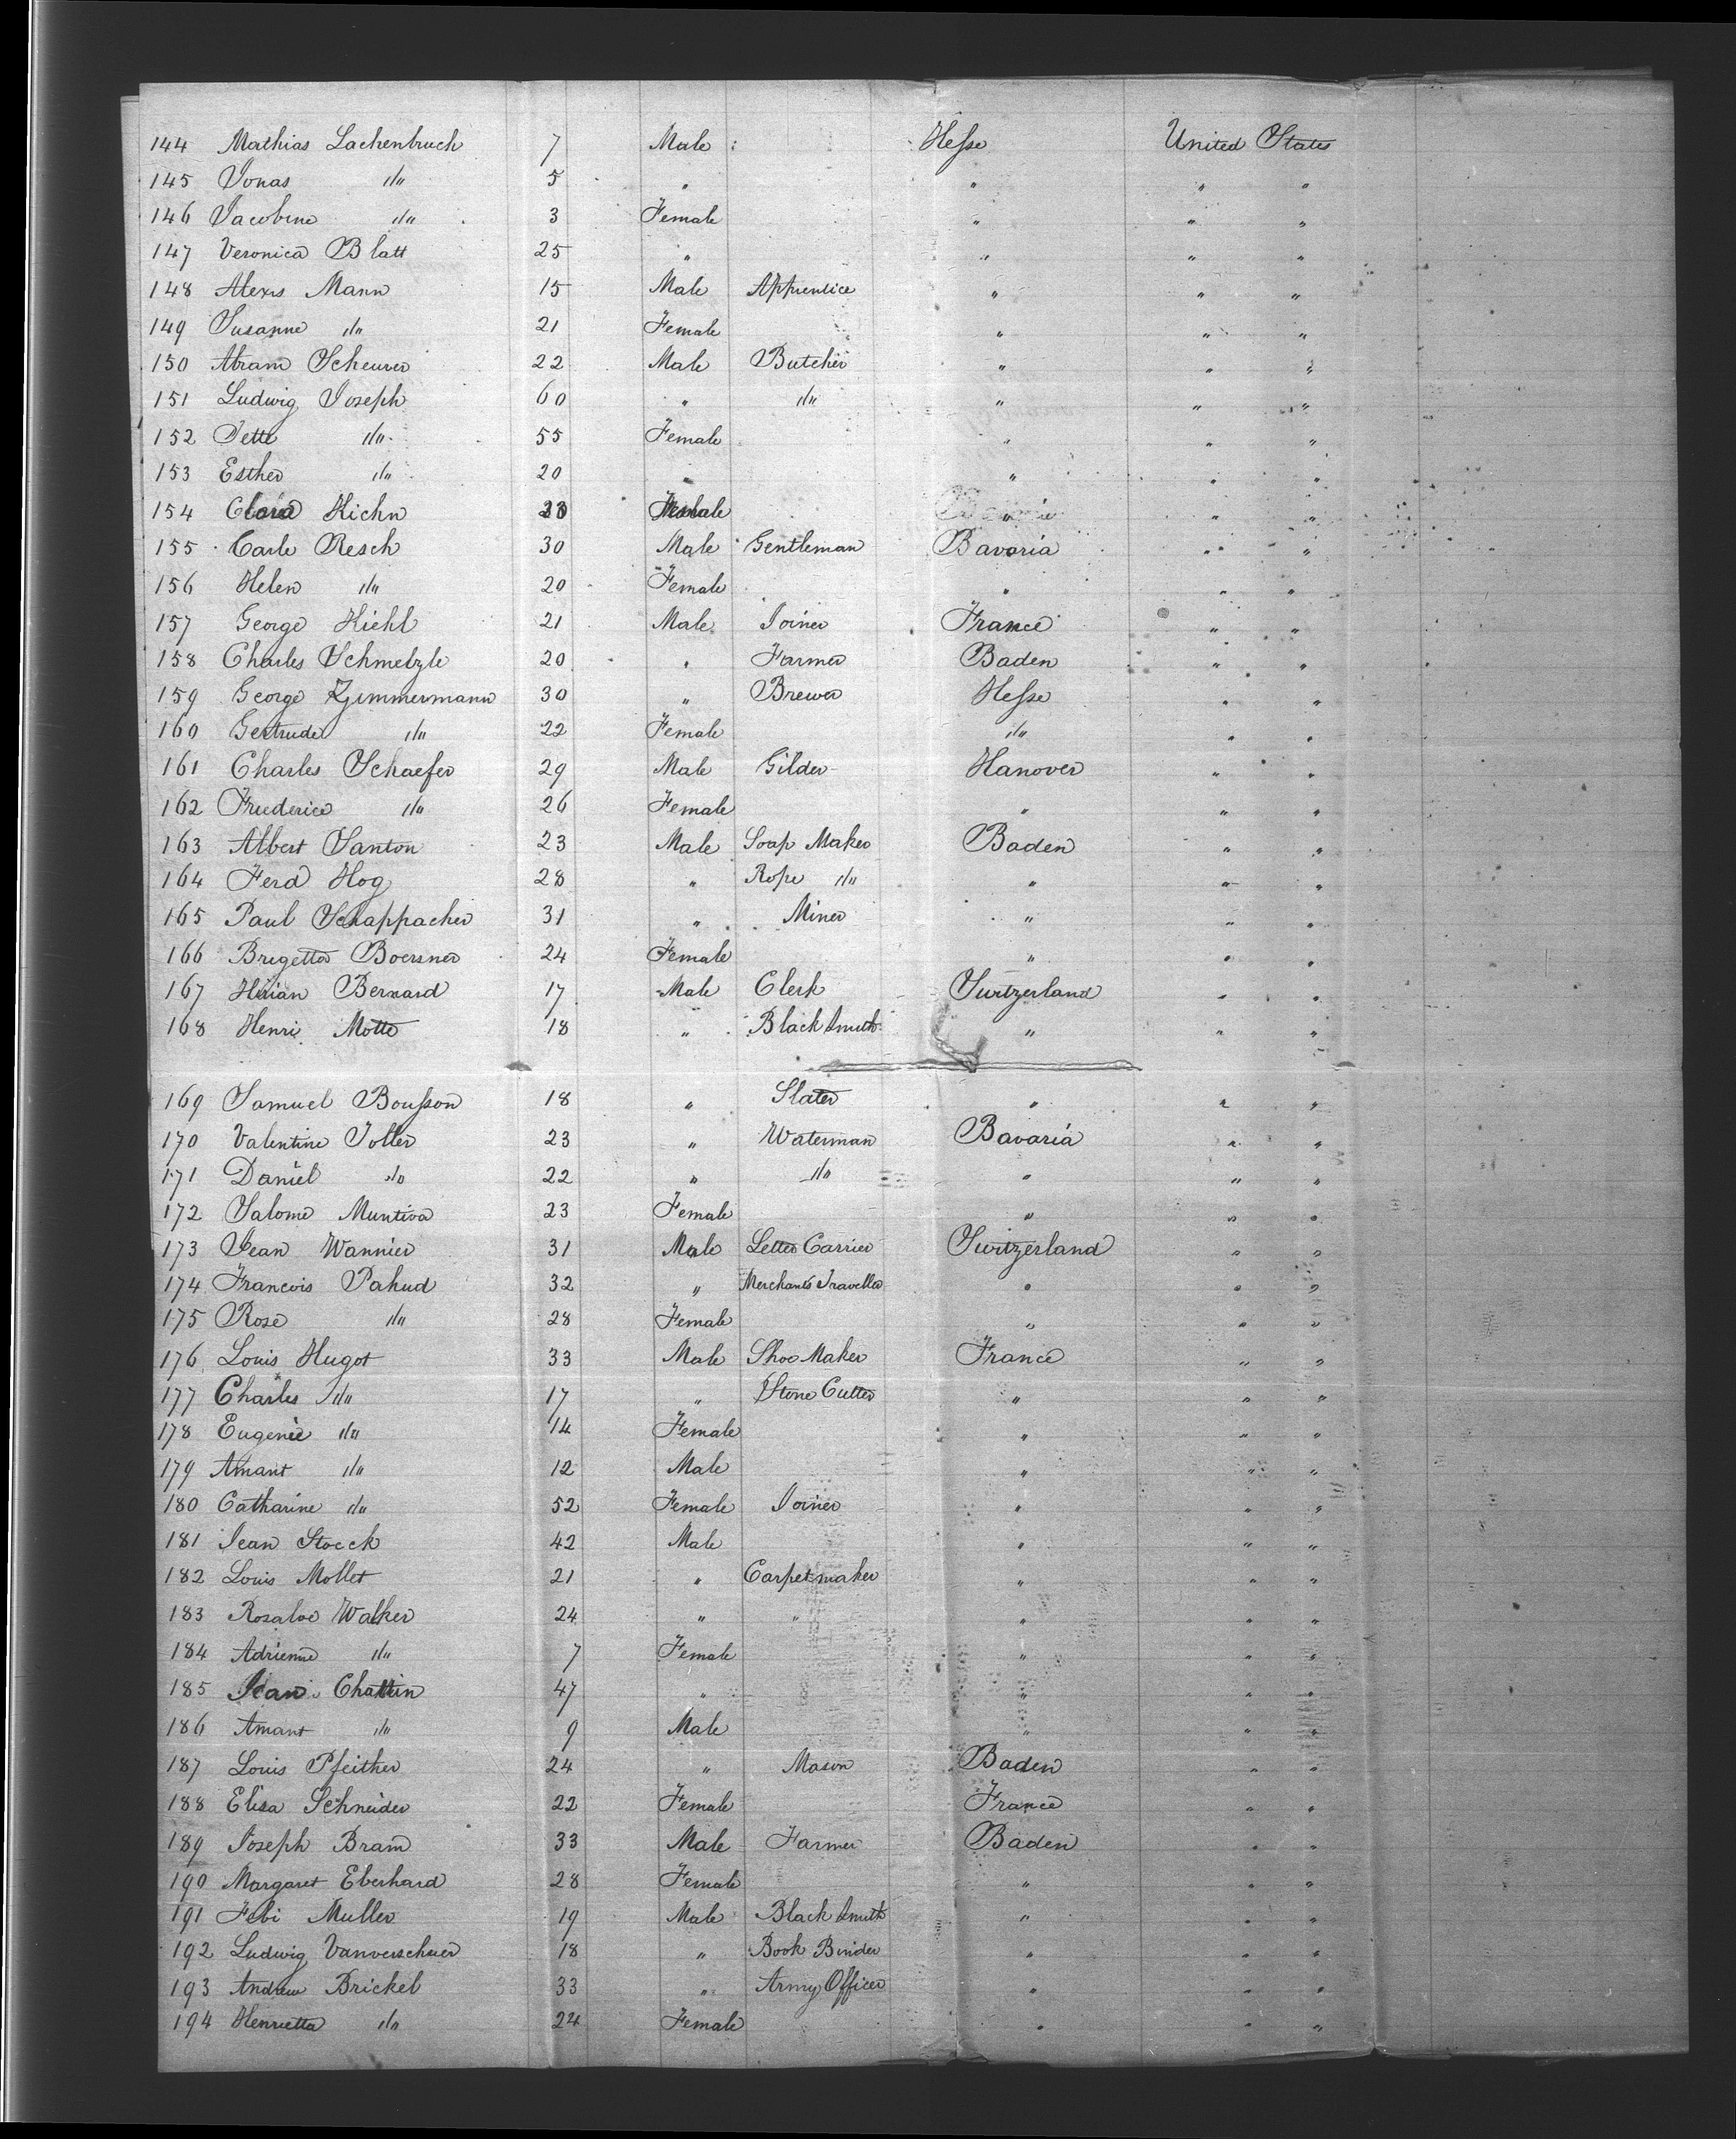 144 Mathias Lachenbruch 7 Male Hesse United States
145 Jonas " 5 " " " "
146 Jacobine " 3 Female " " "
147 Veronica Blatt 25 " " " "
148 Alexis Mann 15 Male Apprentice " " "
149 Susanne " 21 Female " " "
150 Abram Scheurer 22 Male Butcher " " "
151 Ludwig Joseph 60 " " " " "
152 Jette " 55 Female " " "
153 Esther " 20 " " " "
154 Clara Kichn Female " " "
155 Carle Resch 30 Male Gentleman Bavaria " "
156 Helen " 20 Female " " "
157 George Kiehl 21 Male Joiner France " "
158 Charles Schmelzle 20 " Farmer Baden " "
159 George Zimmermann 30 " Brewer Hesse " "
160 Gertrude " 22 Female " " "
161 Charles Schaefer 29 Male Gilder Hanover " "
162 Frederice " 26 Female " " "
163 Albert Santon 23 Male Soap Maker Baden " "
164 Ferd Hog 28 " Rope " " " "
165 Paul Schappacher 31 " Miner " " "
166 Bregetta Boersner 24 Female " " "
167 Bernard 17 Male Clerk Switzerland " "
168 Henri Motte 18 " Black Smith " " "
169 Samuel Bousson 18 " Slater " " "
170 Valentine Joller 23 " Waterman Bavaria " "
171 Daniel " 22 " " " " "
172 Salome Muntiva 23 Female " " "
173 Jean Wannier 31 Male Letter Carrier Switzerland " "
174 Francois Pahud 32 " Merchants Traveller " " "
175 Rose " 28 Female " " "
176 Louis Hugot 33 Male Shoe Maker France " "
177 Charles " 17 " Stone Cutter " " "
178 Eugenie " 14 Female " " "
179 Amant " 12 Male " " "
180 Catharine " 52 Female Joiner " " "
181 Jean Stoeck 42 Male " " "
182 Louis Mollet 21 " Carpetmaker " " "
183 Rosaloe Walker 24 " " " " "
184 Adrienne " 7 Female " " "
185 Jean Chattin 47 " " " "
186 Amant " 9 Male " " "
187 Louis Pfeither 24 " Mason Baden " "
188 Elisa Schneider 22 Female France " "
189 Joseph Bram 33 Male Farmer Baden " "
190 Margaret Eberhard 28 Female " " "
191 Febi Muller 19 Male Black Smith " " "
192 Ludwig Vanverschuer 18 " Book Binder " " "
193 Andrew Brickel 33 " Army Officer " " "
194 Henrietta " 24 Female " " "